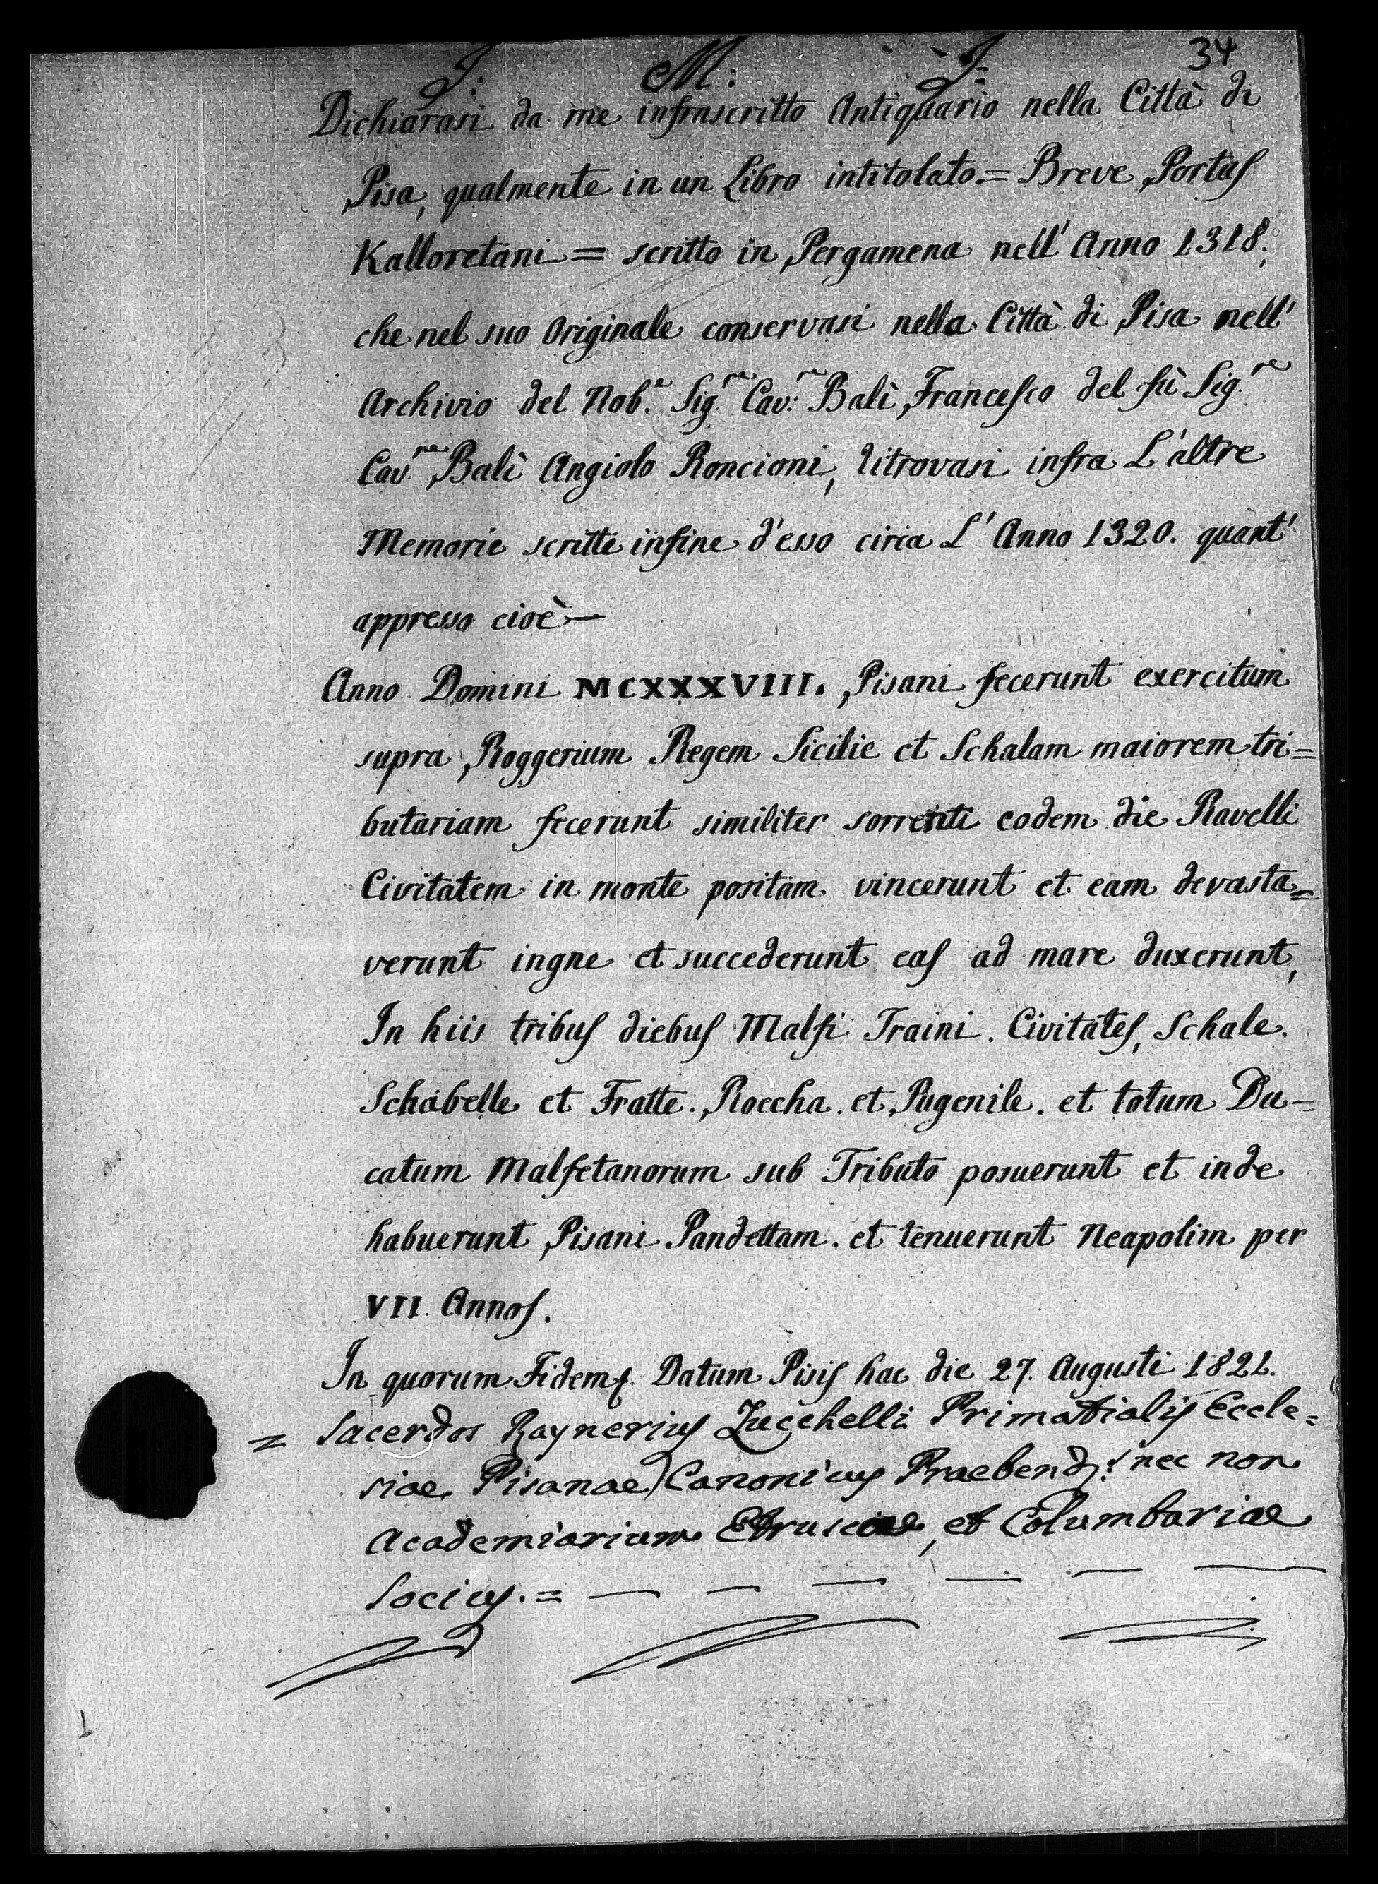 34
J. M: J=
Dichiarasi da me infrascritto Antiquario nella Città di
Pisa, qualmente in un Libro intitolato = Breve Portus
Kalloretani = scritto in Pergamena nell' Anno 1318;
che nel suo Originale conservasi nella Città di Pisa nell'
Archivio del Nob.e Sig.re Cav:re Balì Francesco del fù Sig.re
Cav.re Balì Angiolo Roncioni, ritrovasi infra L'altre
Memorie scritte infine d'esso circa L' Anno 1320. quant'
appresso cioè —
Anno Domini MCXXXVIII. Pisani fecerunt exercitum
supra Roggerium Regem Sicilie et Schalam maiorem tri=
butariam fecerunt similiter sorrenti eodem die Ravelli
Civitatem in monte positam vincerunt et eam devasta=
verunt ingne et succederunt eas ad mare duxerunt,
In hiis tribus diebus Malfi Traini. Civitates, Schale.
Schabelle et Fratte. Roccha. et Pugenile. et totum Du=
catum Malfetanorum sub Tributo posuerunt et inde
habuerunt Pisani Pandettam. et tenuerunt Neapolim per
VII Annos.
In quorum Fidem Datum Pisis hac die 27. Augusti 1821.
= Sacerdos Raynerius Zucchelli Primatialis Eccle=
siae Pisanae Canonicus Praebend: nec non
Academiarium Etruscae, et Columbariae
Socius. = — — — — — —
1